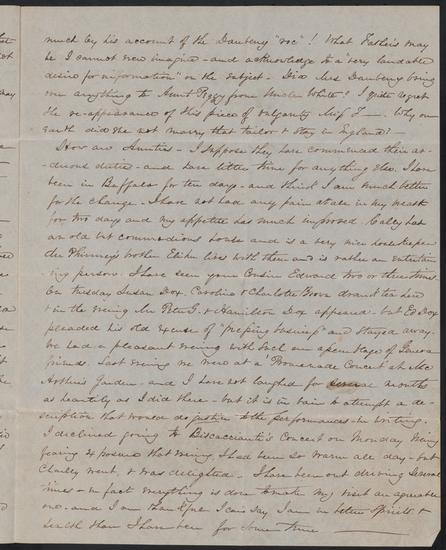 much by his account of the Danbery "roc"! What Father's may
be I cannot now imagine - and acknowledge to a "very laudable
desire for information" on the subject - Did Mrs Danbery bring
me anything to Aunt Peggy from Uncle White? I quite regret
the re-appearance of this piece of vulgarity Miss F—. Why on
Earth did she not marry that tailor & stay in England? -
How are Aunties - I suppose they have commenced their ar-
duous duties - and have little time for anything else. I have
been in Buffalo for ten days - and think I am much better
for the change. I have not had any pain at all in my
for two days and my appetite has much improved. Caley has
an old but commodious house and is a very nice housekeeper
Mr brother lives with them and is rather an entertain
-ing person. I have seen your Cousin Edward two or three times
On Tuesday Susan Dox. Caroline & Charlotte drank tea here
& in the evening Mr Peter & Hamilton Dox appeared - but Ed Dox
pleaded his old excuse of "pressing business" and stayed away.
We had a pleasant evening with such an assemblage of Geneva
friends. Last evening we were at a Promenade Concert at Mc
Arthur's Garden - and I have not laughed for several months
as heartily as I did there - but it is in vain to attempt a de-
scription that would do justice to the performances - in writing.
I declined going to Biscaccianti's Concert on Monday Evening
fearing exposure that evening. I had been so warm all day - but
Charley went, & was delighted. - I have been out driving several
times & in fact everything is done to make my visit an agreeable
one - and I am thankful I can say I am in better spirits &
health than I have been for some time